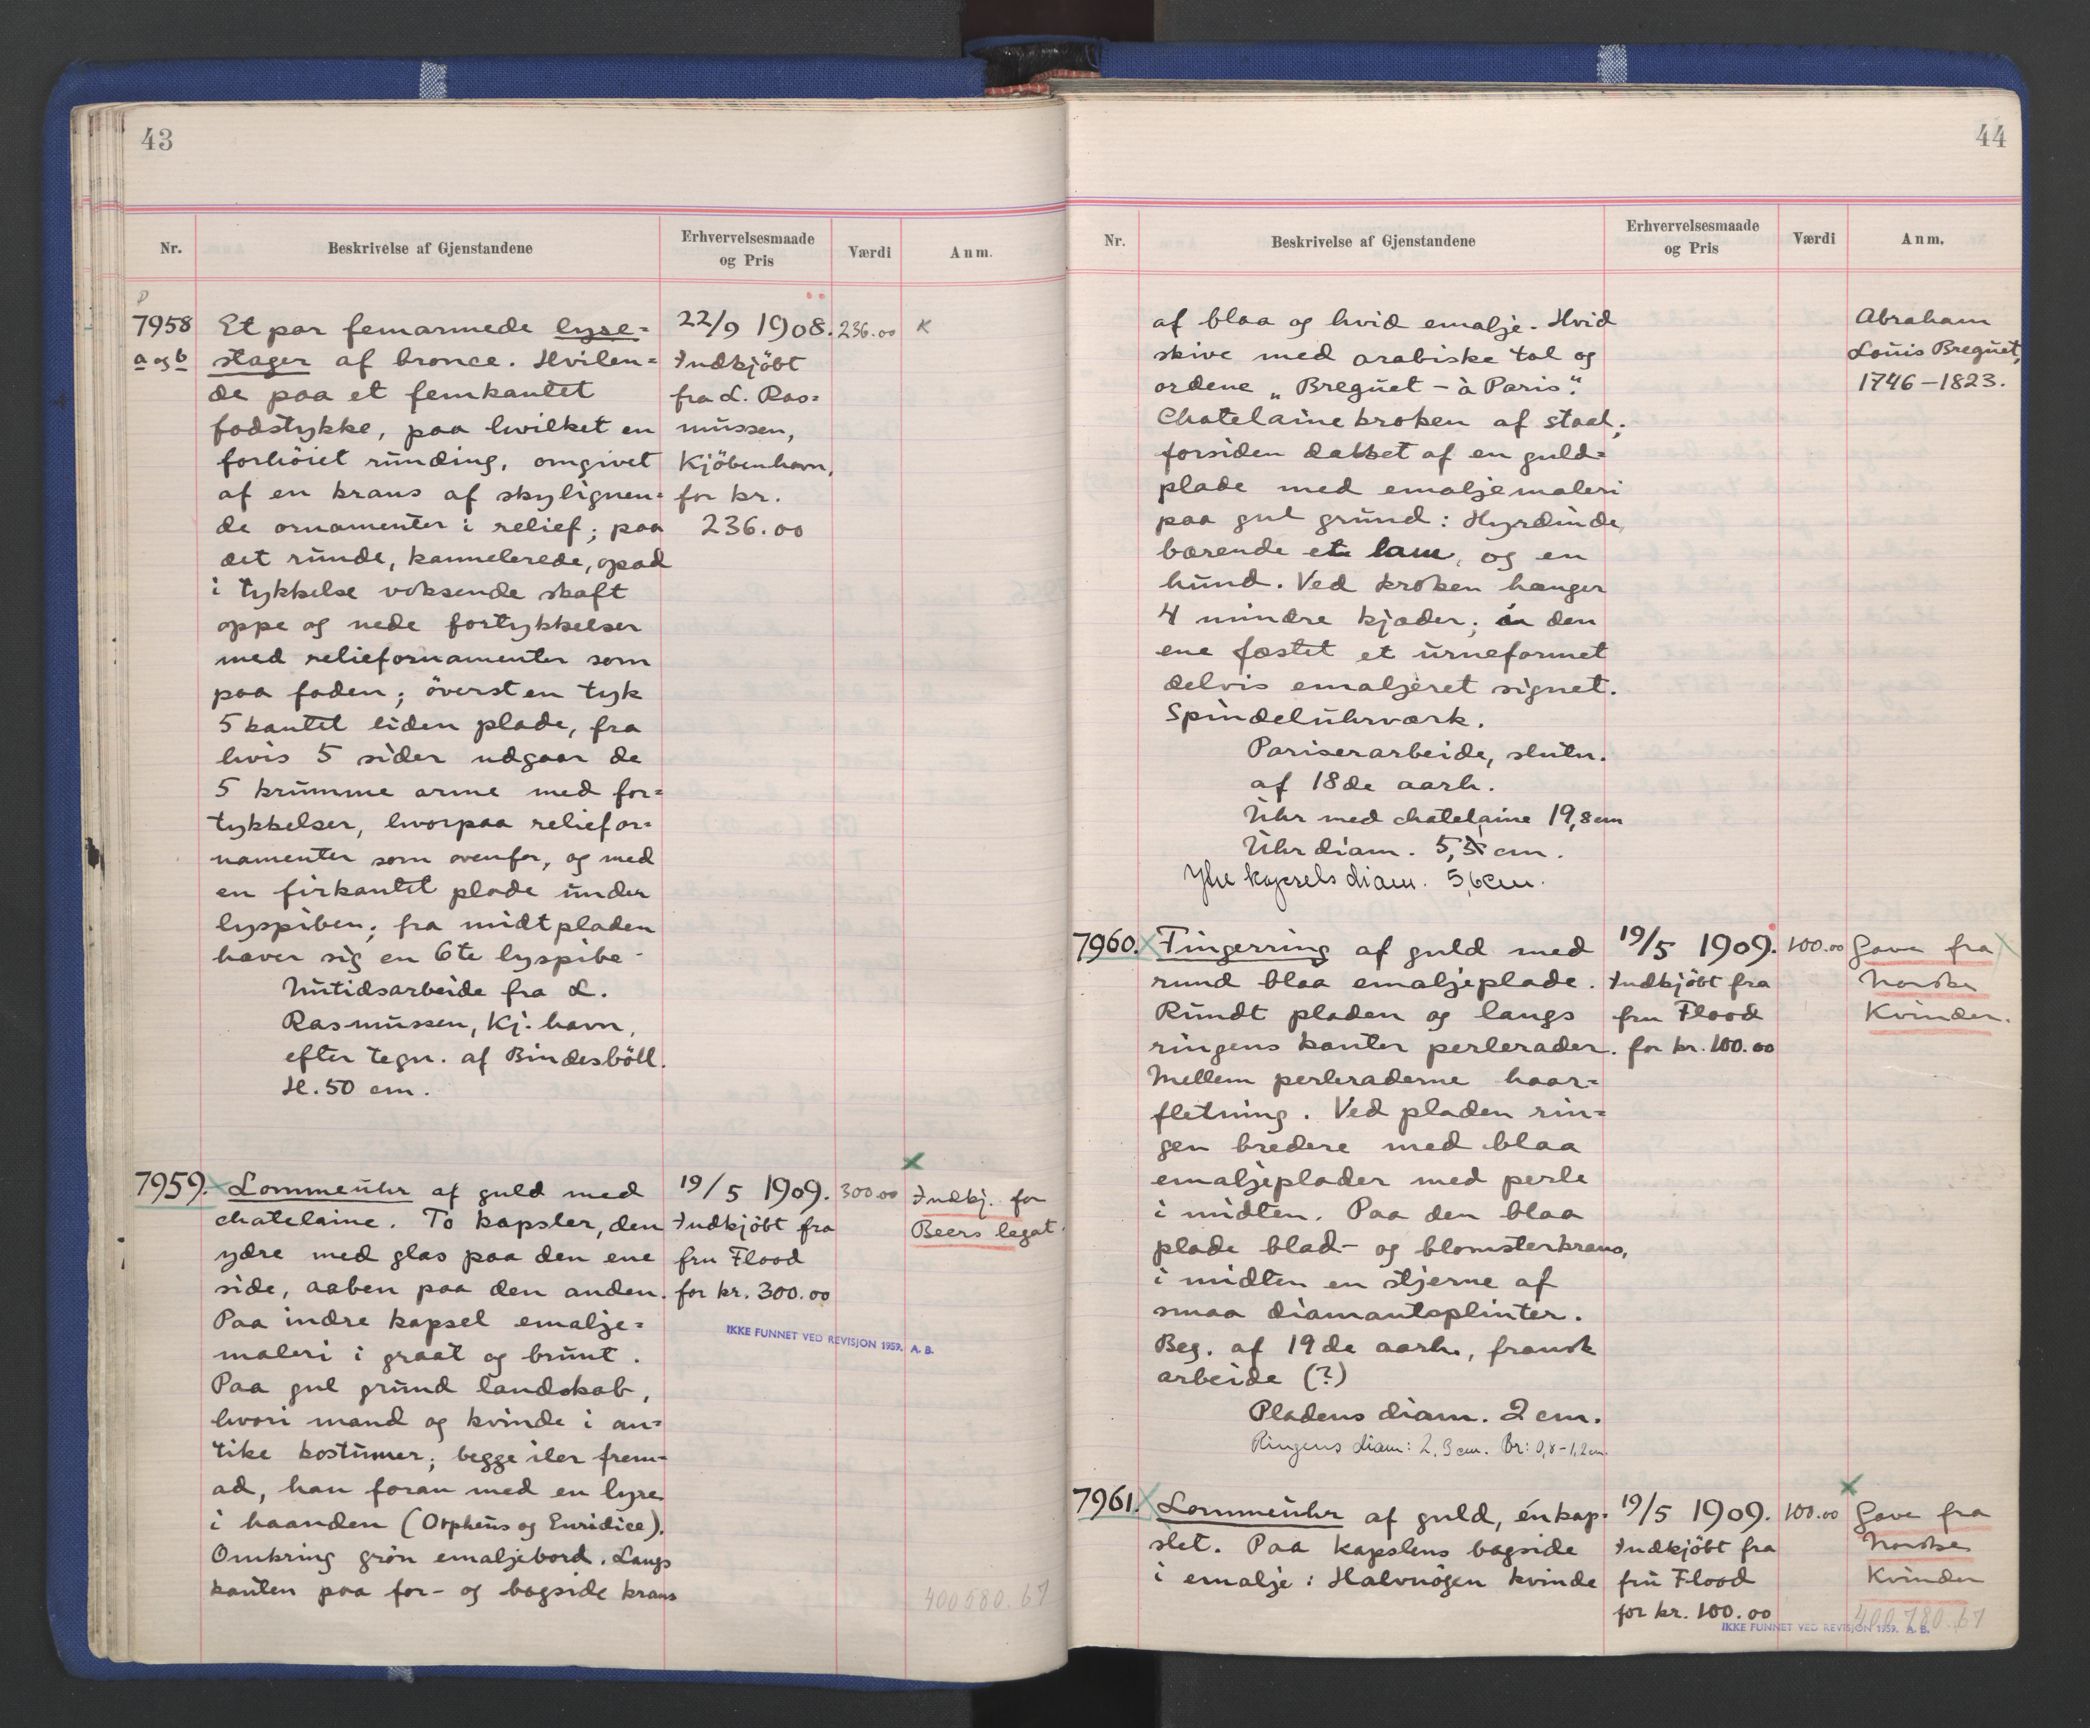 43
Nr.
Beskrivelse af Gjenstandene
Erhvervelsesmaade
og Pris
Værdi
Anm.
7958
a og b
Et par femarmede lyse=
stager af bronce. Hvilen=
de paa et femkantet
fodstykke, paa hvilket en
forhöiet runding, omgivet
af en krans af skylignen=
de ornamenter i relief; paa
det runde, kannelerede, opad
i tykkelse voksende skaft
oppe og nede fortykkelser
med reliefornamenter som
paa foden; överst en tyk
5 kantet liden plade, fra
hvis 5 sider udgaar de
5 krumme arme med for=
tykkelser, hvorpaa reliefor=
namenter som ovenfor, og med
en firkantet plade under
lyspiben; fra midtpladen
hæver sig en 6te lyspibe.
Nutidsarbeide fra L.
Rasmussen, Kj.havn,
efter tegn. af Bindesböll.
H. 50 cm.
22/9 1908.
Indkjöbt
fra L. Ras=
mussen,
Kjöbenhavn,
for kr.
236.00
236.00
K
7959.
Lommeuhr af guld med
chatelaine. To kapsler, den
ydre med glas paa den ene
side, aaben paa den anden.
Paa indre kapsel emalje=
maleri i graat og brunt.
Paa gul grund landskab,
hvori mand og kvinde i an=
tike kostumer; begge iler frem=
ad, han foran med en lyre
i haanden (Orpheus og Euridice).
Omkring grön emaljebord. Langs
kanten paa for- og bagside krans
19/5 1909.
Indkjöbt fra
fru Flood
for kr. 300.00
300.00
Indkj. for
Beers legat.
IKKE FUNNET VED REVISJON 1959. A. B.
400580.67
44
Nr.
Beskrivelse af Gjenstandene
Erhvervelsesmaade
og Pris
Værdi
Anm.
af blaa og hvid emalje. Hvid
skive med arabiske tal og
ordene „Breguet – à Paris".
Chatelainekroken af staal;
forsiden dækket af en guld=
plade med emaljemaleri
paa gul grund: Hyrdinde,
bærende et lam, og en
hund. Ved kroken hænger
4 mindre kjæder; i den
ene fæstet et urneformet
delvis emaljeret signet.
Spindeluhrværk.
Pariserarbeide, slutn.
af 18de aarh.
Uhr med chatelaine 19,8 cm
Uhr diam. 5,5 cm.
Ytre kapsels diam. 5,6 cm.
Abraham
Louis Breguet,
1746–1823.
7960.
Fingerring af guld med
rund blaa emaljeplade.
Rundt pladen og langs
ringens kanter perlerader.
Mellem perleraderne haar=
fletning. Ved pladen rin=
gen bredere med blaa
emaljeplader med perle
i midten. Paa den blaa
plade blad- og blomsterkrans,
i midten en stjerne af
smaa diamantsplinter.
Beg. af 19de aarh., fransk
arbeide (?)
Pladens diam. 2 cm.
Ringens diam: 2,3 cm. Br: 0,8–1,2 cm.
19/5 1909.
Indkjöbt fra
fru Flood
for kr. 100.00
100.00
Gave fra
Norske
Kvinder.
7961.
Lommeuhr af guld, énkap=
slet. Paa kapslens bagside
i emalje: Halvnögen kvinde
19/5 1909.
Indkjöbt fra
fru Flood
for kr. 100.00
100.00
Gave fra
Norske
Kvinder
400780.67
IKKE FUNNET VED REVISJON 1959. A. B.